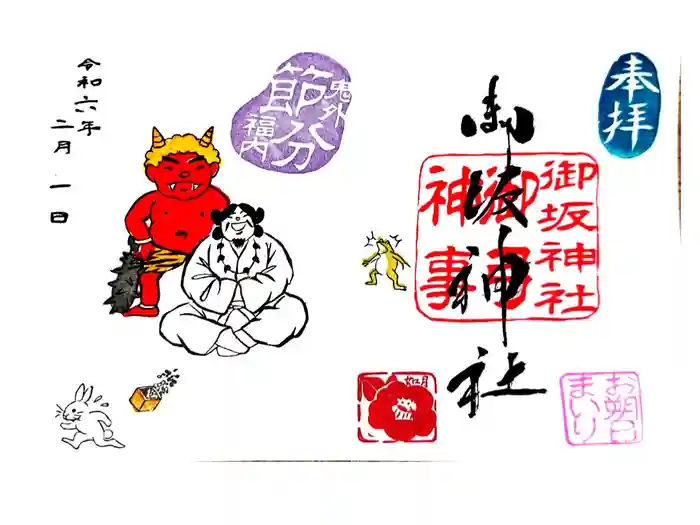 奉拝
御坂神社
御坂神社
神事
お朔日
まいり
如月
鬼外
節分
福内
令和六年
二月一日